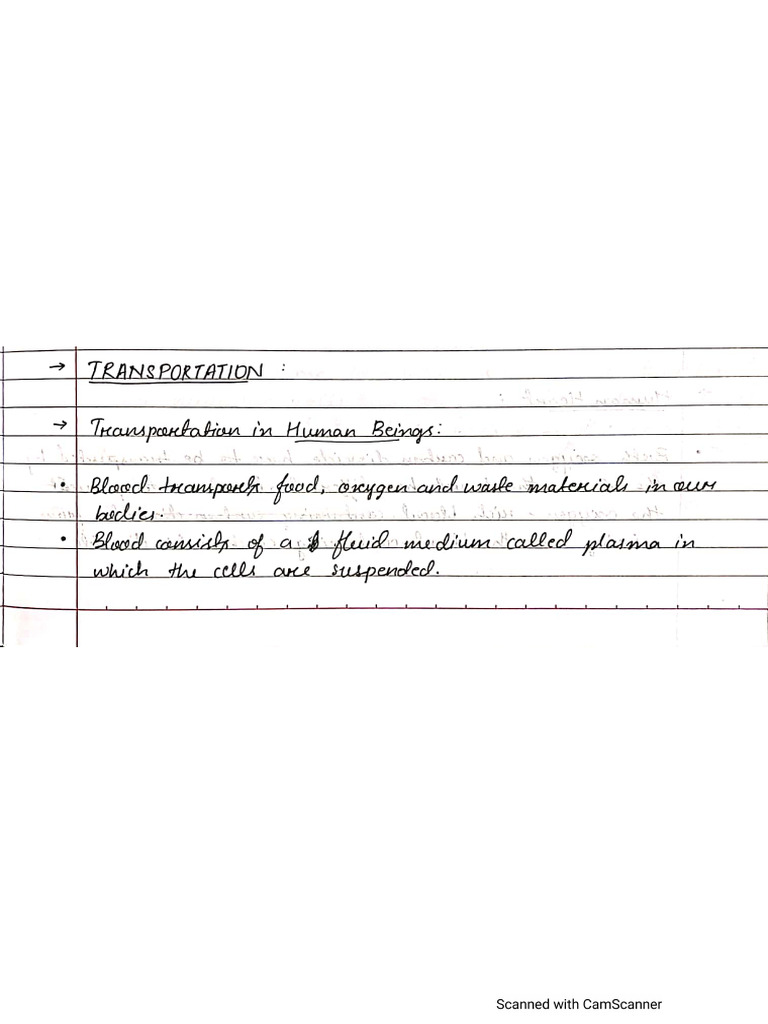 → TRANSPORTATION :
→ Transportation in Human Beings:
• Blood transports food, oxygen and waste materials in our
bodies.
• Blood consists of a fluid medium called plasma in
which the cells are suspended.
Scanned with CamScanner